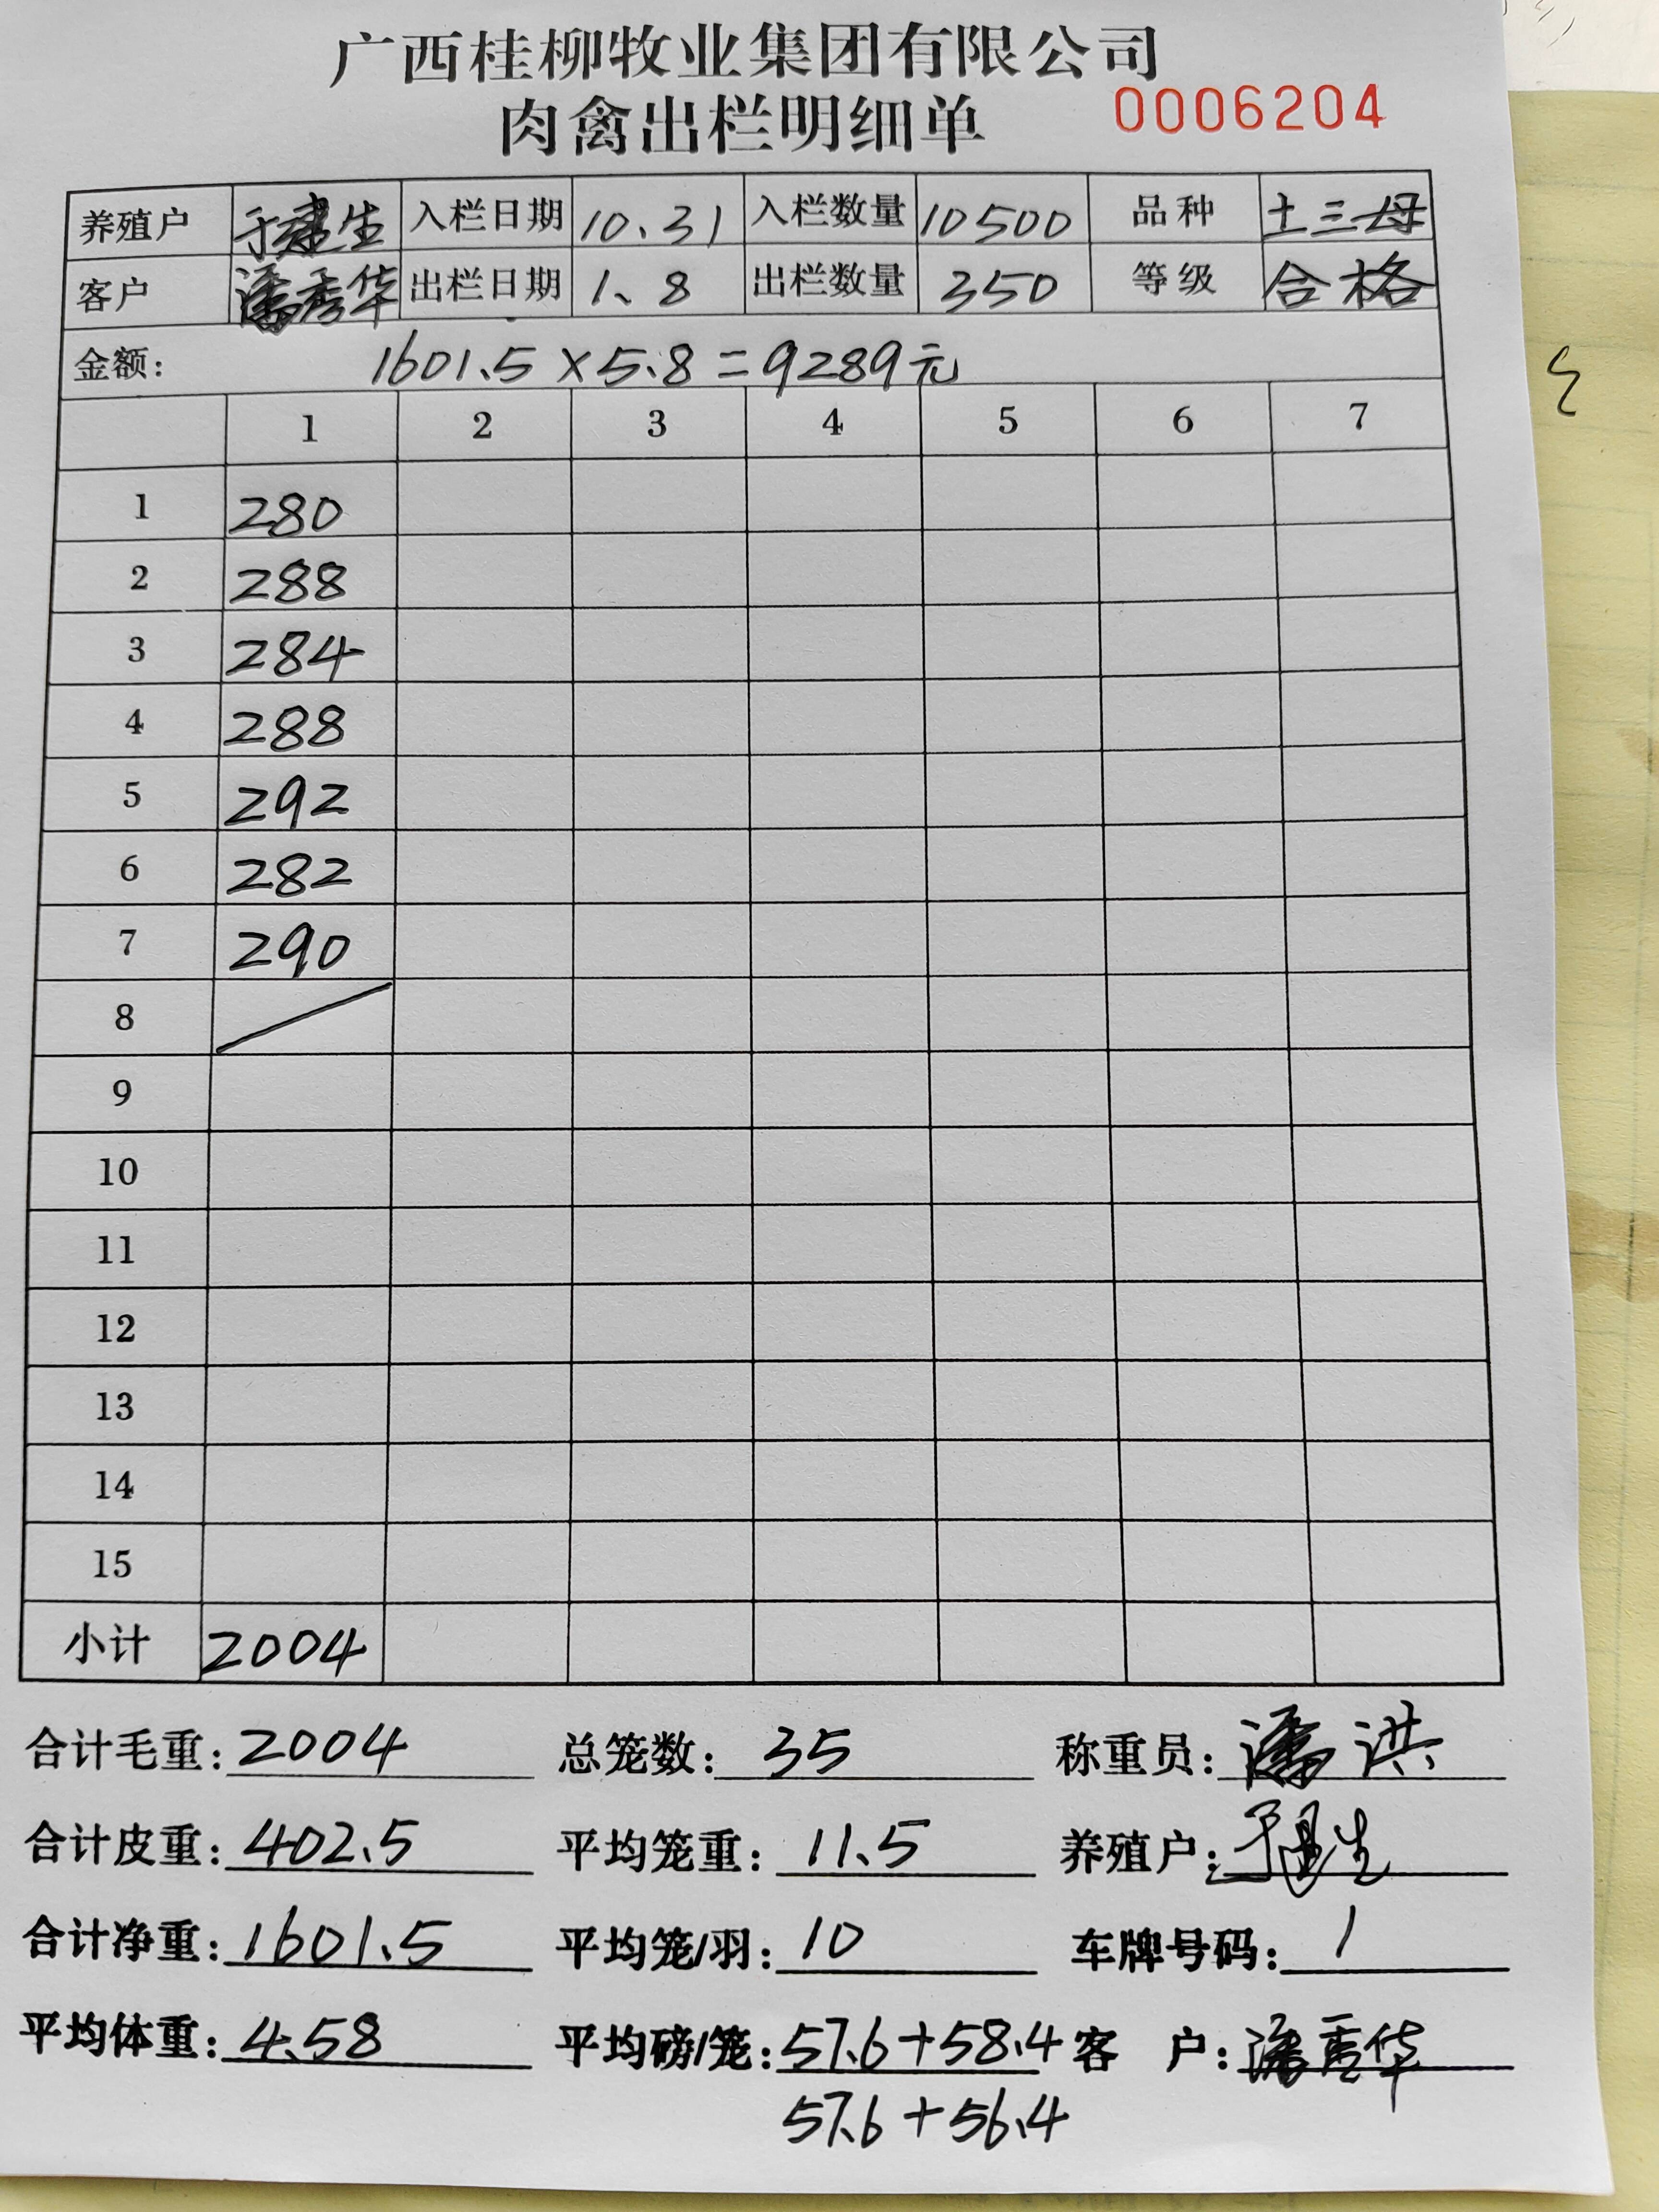 广西桂柳牧业集团有限公司
肉禽出栏明细单 0006204
养殖户 于建生 入栏日期 10.31 入栏数量 10500 品种 土三母
客户 潘秀华 出栏日期 1、8 出栏数量 350 等级 合格
金额: 1601.5×5.8=9289元
1 2 3 4 5 6 7
1 280
2 288
3 284
4 288
5 292
6 282
7 290
8
9
10
11
12
13
14
15
小计 2004
合计毛重: 2004 总笼数: 35 称重员: 潘洪
合计皮重: 402.5 平均笼重: 11.5 养殖户: 于建生
合计净重: 1601.5 平均笼/羽: 10 车牌号码: 1
平均体重: 4.58 平均磅/笼: 57.6+58.4 客 户: 潘秀华
57.6+56.4